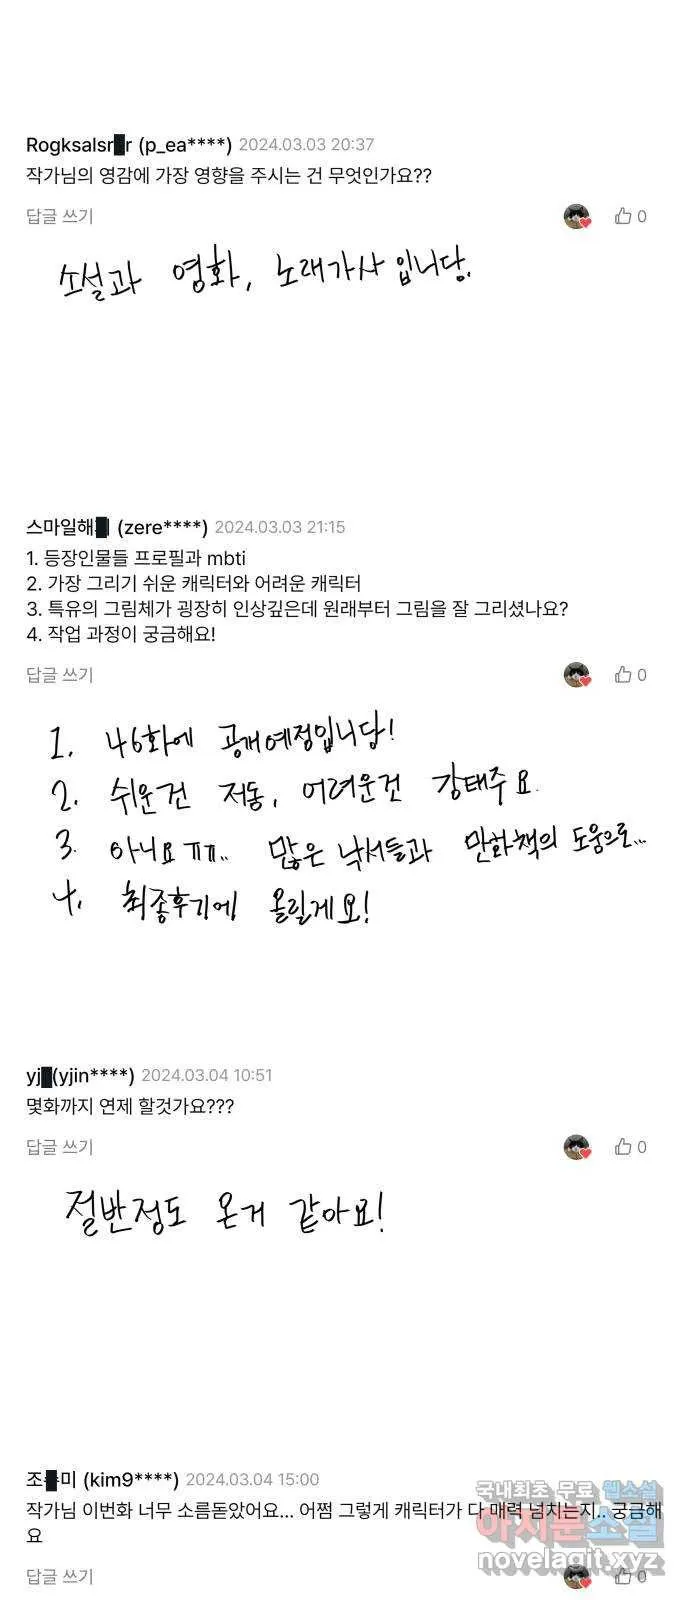 Rogksalsr r (p_ea****) 2024.03.03 20:37
작가님의 영감에 가장 영향을 주시는 건 무엇인가요??
답글 쓰기
0
소설과 영화, 노래가사입니당.
스마일해 (zere****) 2024.03.03 21:15
1. 등장인물들 프로필과 mbti
2. 가장 그리기 쉬운 캐릭터와 어려운 캐릭터
3. 특유의 그림체가 굉장히 인상깊은데 원래부터 그림을 잘 그리셨나요?
4. 작업 과정이 궁금해요!
답글 쓰기
0
1. 46화에 공개예정입니당!
2. 쉬운건 저동, 어려운건 강태주요.
3. 아니요ㅠㅠ.. 많은 낙서들과 만화책의 도움으로...
4. 최종후기에 올릴게요!
yj (yjin****) 2024.03.04 10:51
몇화까지 연제 할것가요???
답글 쓰기
0
절반정도 온거 같아요!
조 미 (kim9****) 2024.03.04 15:00
작가님 이번화 너무 소름돋았어요... 어쩜 그렇게 캐릭터가 다 매력 넘치는지.. 궁금해
요
답글 쓰기
0
국내최초 무료 웹소설
아지툰소설
novelagit.xyz